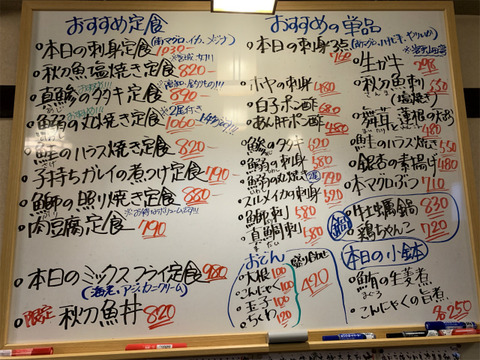 おすすめ定食
・本日の刺身定食 1030-
・秋刀魚塩焼き定食 820-
・真鯵のタタキ定食 890-
※2尾付き
の丸焼き定食 1060-
・鮭のハラス焼き定食 820
・子持ちガレイの煮つけ定食 790
・鰤の照り焼き定食 880
・肉豆腐定食 790
・本日のミックスフライ定食 980
(海老、アジ、カニクリーム)
限定 秋刀魚丼 820
おすすめの単品
・本日の刺身3点 760
・ホヤの刺身 480
・白子ポン酢 680
・あん肝ポン酢 480
・真鯵のタタキ 620
の刺身 580
の丸焼き
・スルメイカの刺身 520
・鰤刺 580
・真鯛刺 580
おでん
・大根 100
・こんにゃく 100
・玉子 100
・ちくわ 120
盛り合わせ 420
・生ガキ
・秋刀魚刺
(塩焼き) 550
・鮭のハラス焼 550
・銀杏の素揚げ 480
・本マグロぶつ 710
鍋
・牡蠣鍋 830
・鶏ちゃんこ 720
本日の小鉢
・鮪の生姜煮
・こんにゃくの旨煮
各250